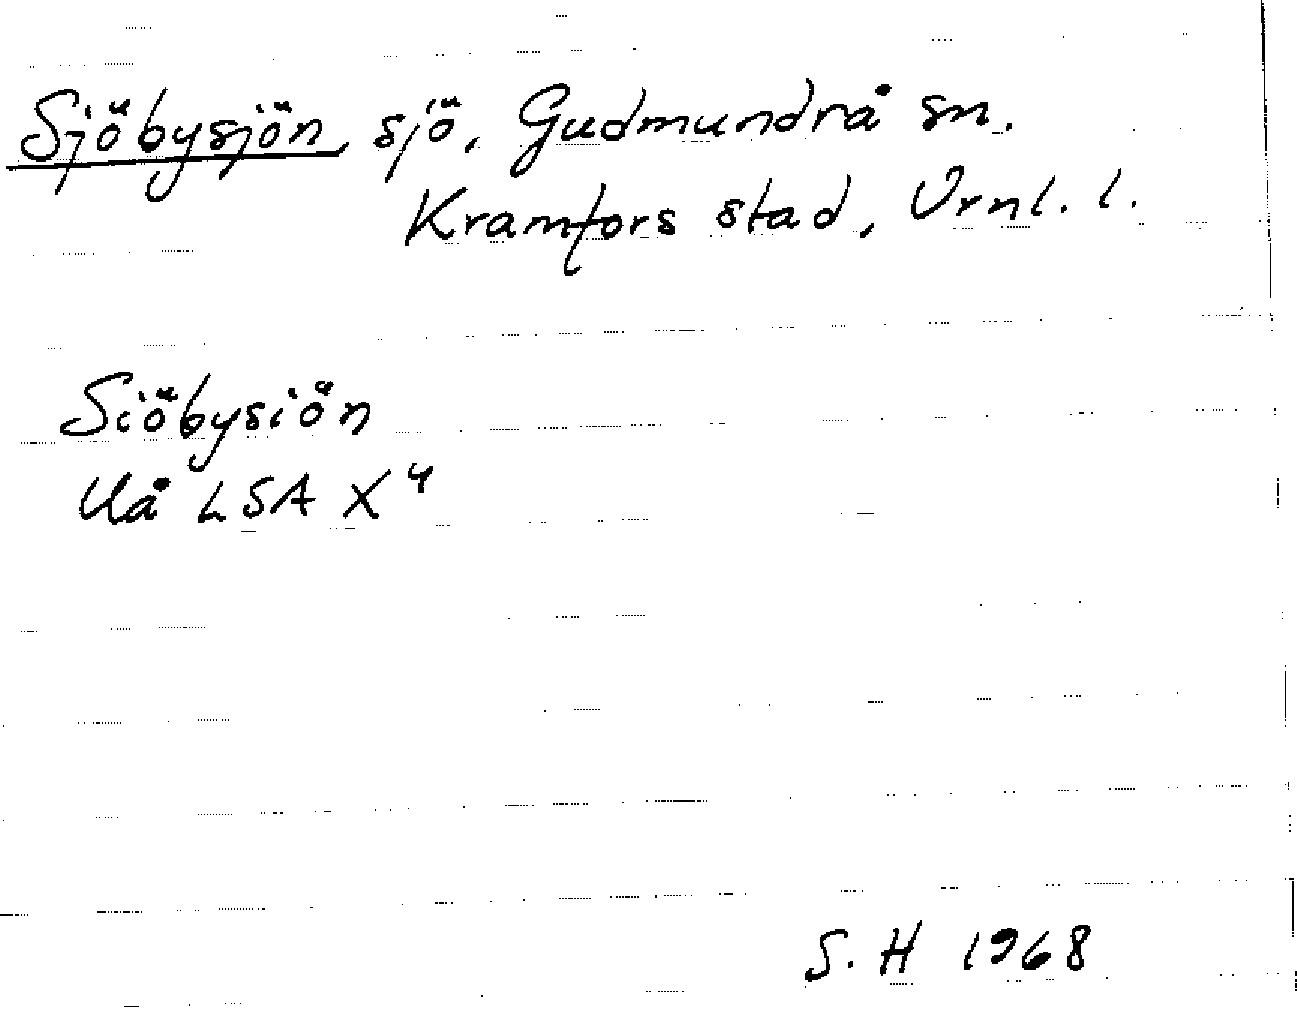 Sjöbysjön, sjö, Gudmundrå sn.
Kramfors stad, Vrnl. l.
Siöbysiön
Uå LSA X4
S. H 1968